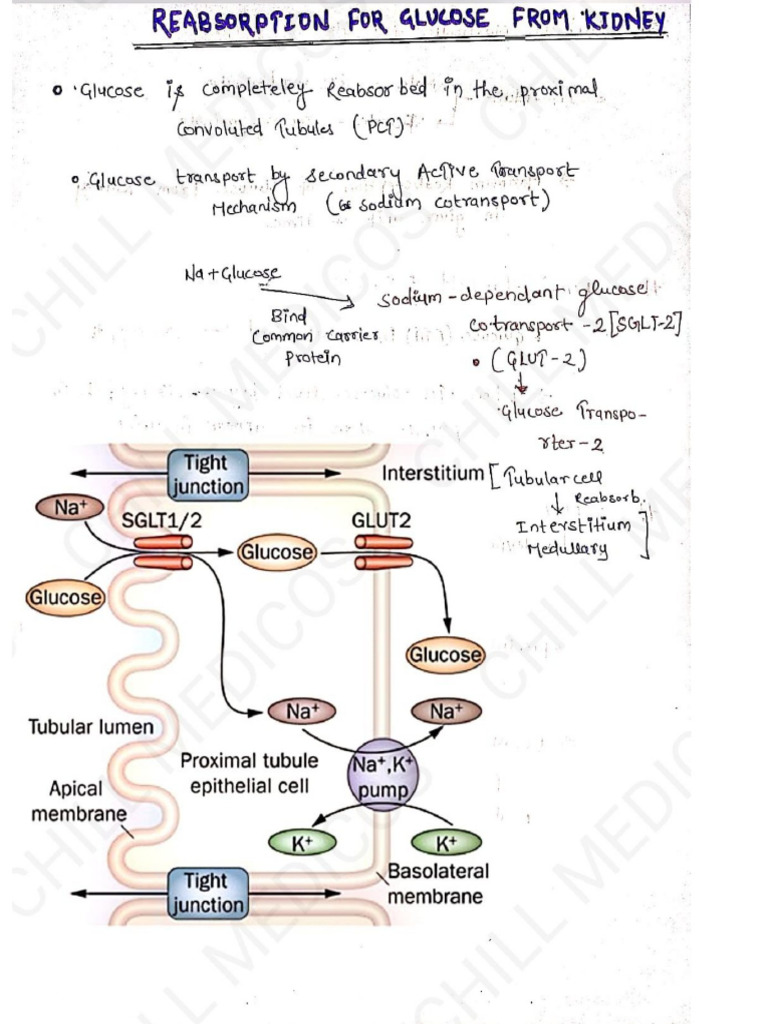 REABSORPTION FOR GLUCOSE FROM KIDNEY
Glucose is completeley Reabsorbed in the proximal
Convoluted Tubules (PCT)
Glucose transport by secondary Active Transport
Mechanism (sodium cotransport)
Na + Glucose
Bind
Common Carrier
Protein
Sodium-dependant glucose
Cotransport-2 [SGLT-2]
(GLUT-2)
Glucose Transpo-
rter-2
Tight
junction
Interstitium
[Tubular cell
Reabsorb.
Interstitium
Medullary]
Na+
SGLT1/2
GLUT2
Glucose
Glucose
Glucose
Na+
Na+
Tubular lumen
Proximal tubule
epithelial cell
Na+,K+
pump
Apical
membrane
K+
K+
Basolateral
membrane
Tight
junction
CHILL MEDICOS